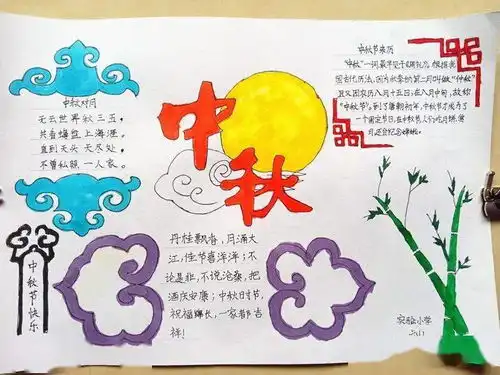 中秋对月
无云世界秋三五，
共看蟾盘上海涯。
直到天头天尽处，
不曾私照一人家。
中秋
中秋节来历
"中秋"一词最早见于《周礼》。根据我
国古代历法，因为秋季的第二月叫做"仲秋"
且又因农历八月十五日，在八月中旬，故称
"中秋节"。到了唐朝初年，中秋节才成为了
一个固定节日，在中秋节人们吃月饼、赏
月还会纪念嫦娥。
中秋节快乐
丹桂飘香，月涌大
江；佳节喜洋洋；不
论是非，不说沧桑，把
酒庆安康；中秋日时节，
祝福绵长，一家都吉
祥！
实验小学